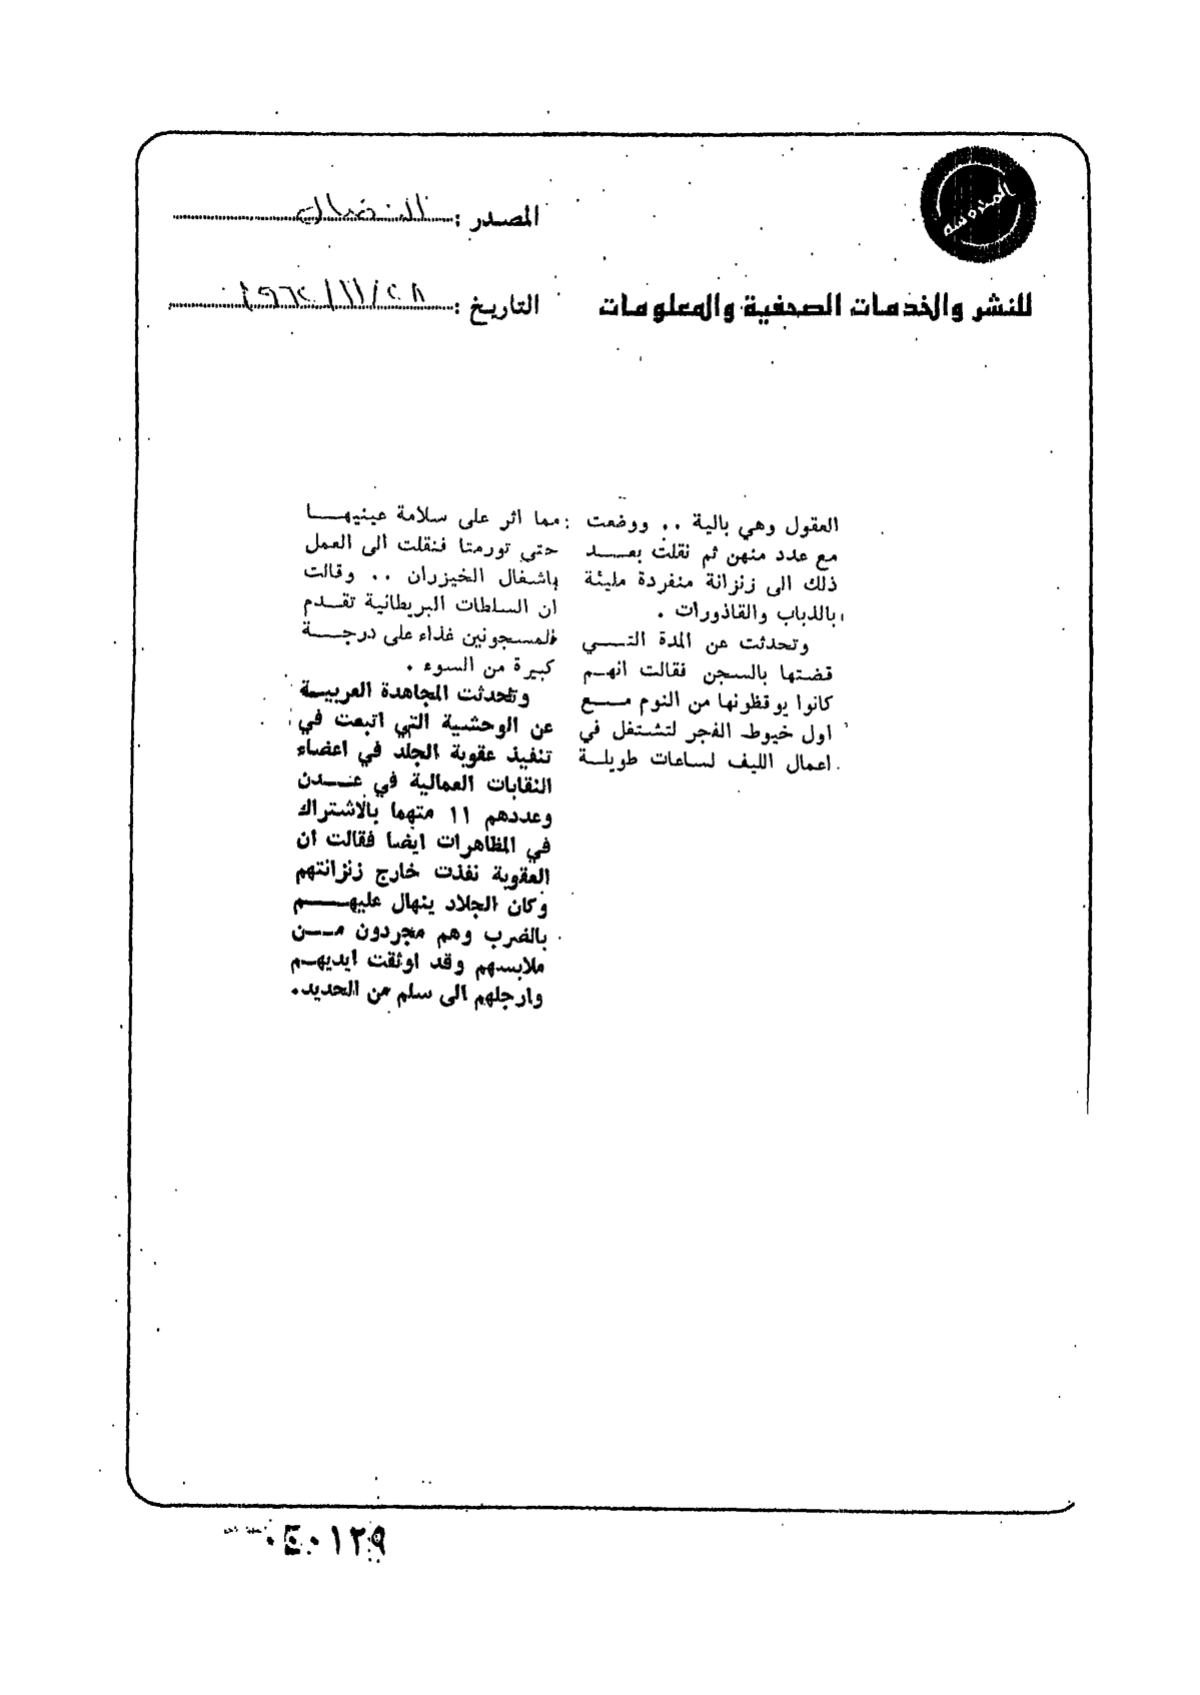 المصدر : النضال
التاريخ : ٢٨/١١/١٩٦٢
للنشر والخدمات الصحفية والمعلومات
العقول وهي بالية .. ووضعت
مع عدد منهن ثم نقلت بعـــد
ذلك الى زنزانة منفردة مليئة
بالذباب والقاذورات .
وتحدثت عن المدة التـــي
قضتها بالسجن فقالت انهـم
كانوا يوقظونها من النوم مـــع
اول خيوط الفجر لتشتغل في
اعمال الليف لساعات طويلـة
مما اثر على سلامة عينيهـــا
حتى تورمتا فنقلت الى العمل
باشغال الخيزران .. وقالت
ان السلطات البريطانية تقـدم
للمسجونين غذاء على درجـــة
كبيرة من السوء .
وتحدثت المجاهدة العربيـة
عن الوحشية التي اتبعت في
تنفيذ عقوبة الجلد في اعضاء
النقابات العمالية في عـــدن
وعددهم ١١ متهما بالاشتراك
في المظاهرات ايضا فقالت ان
العقوبة نفذت خارج زنزانتهم
وكان الجلاد ينهال عليهـــم
بالضرب وهم مجردون مـــن
ملابسهم وقد اوثقت ايديهـم
وارجلهم الى سلم من الحديد.
٠٤٠١٢٩